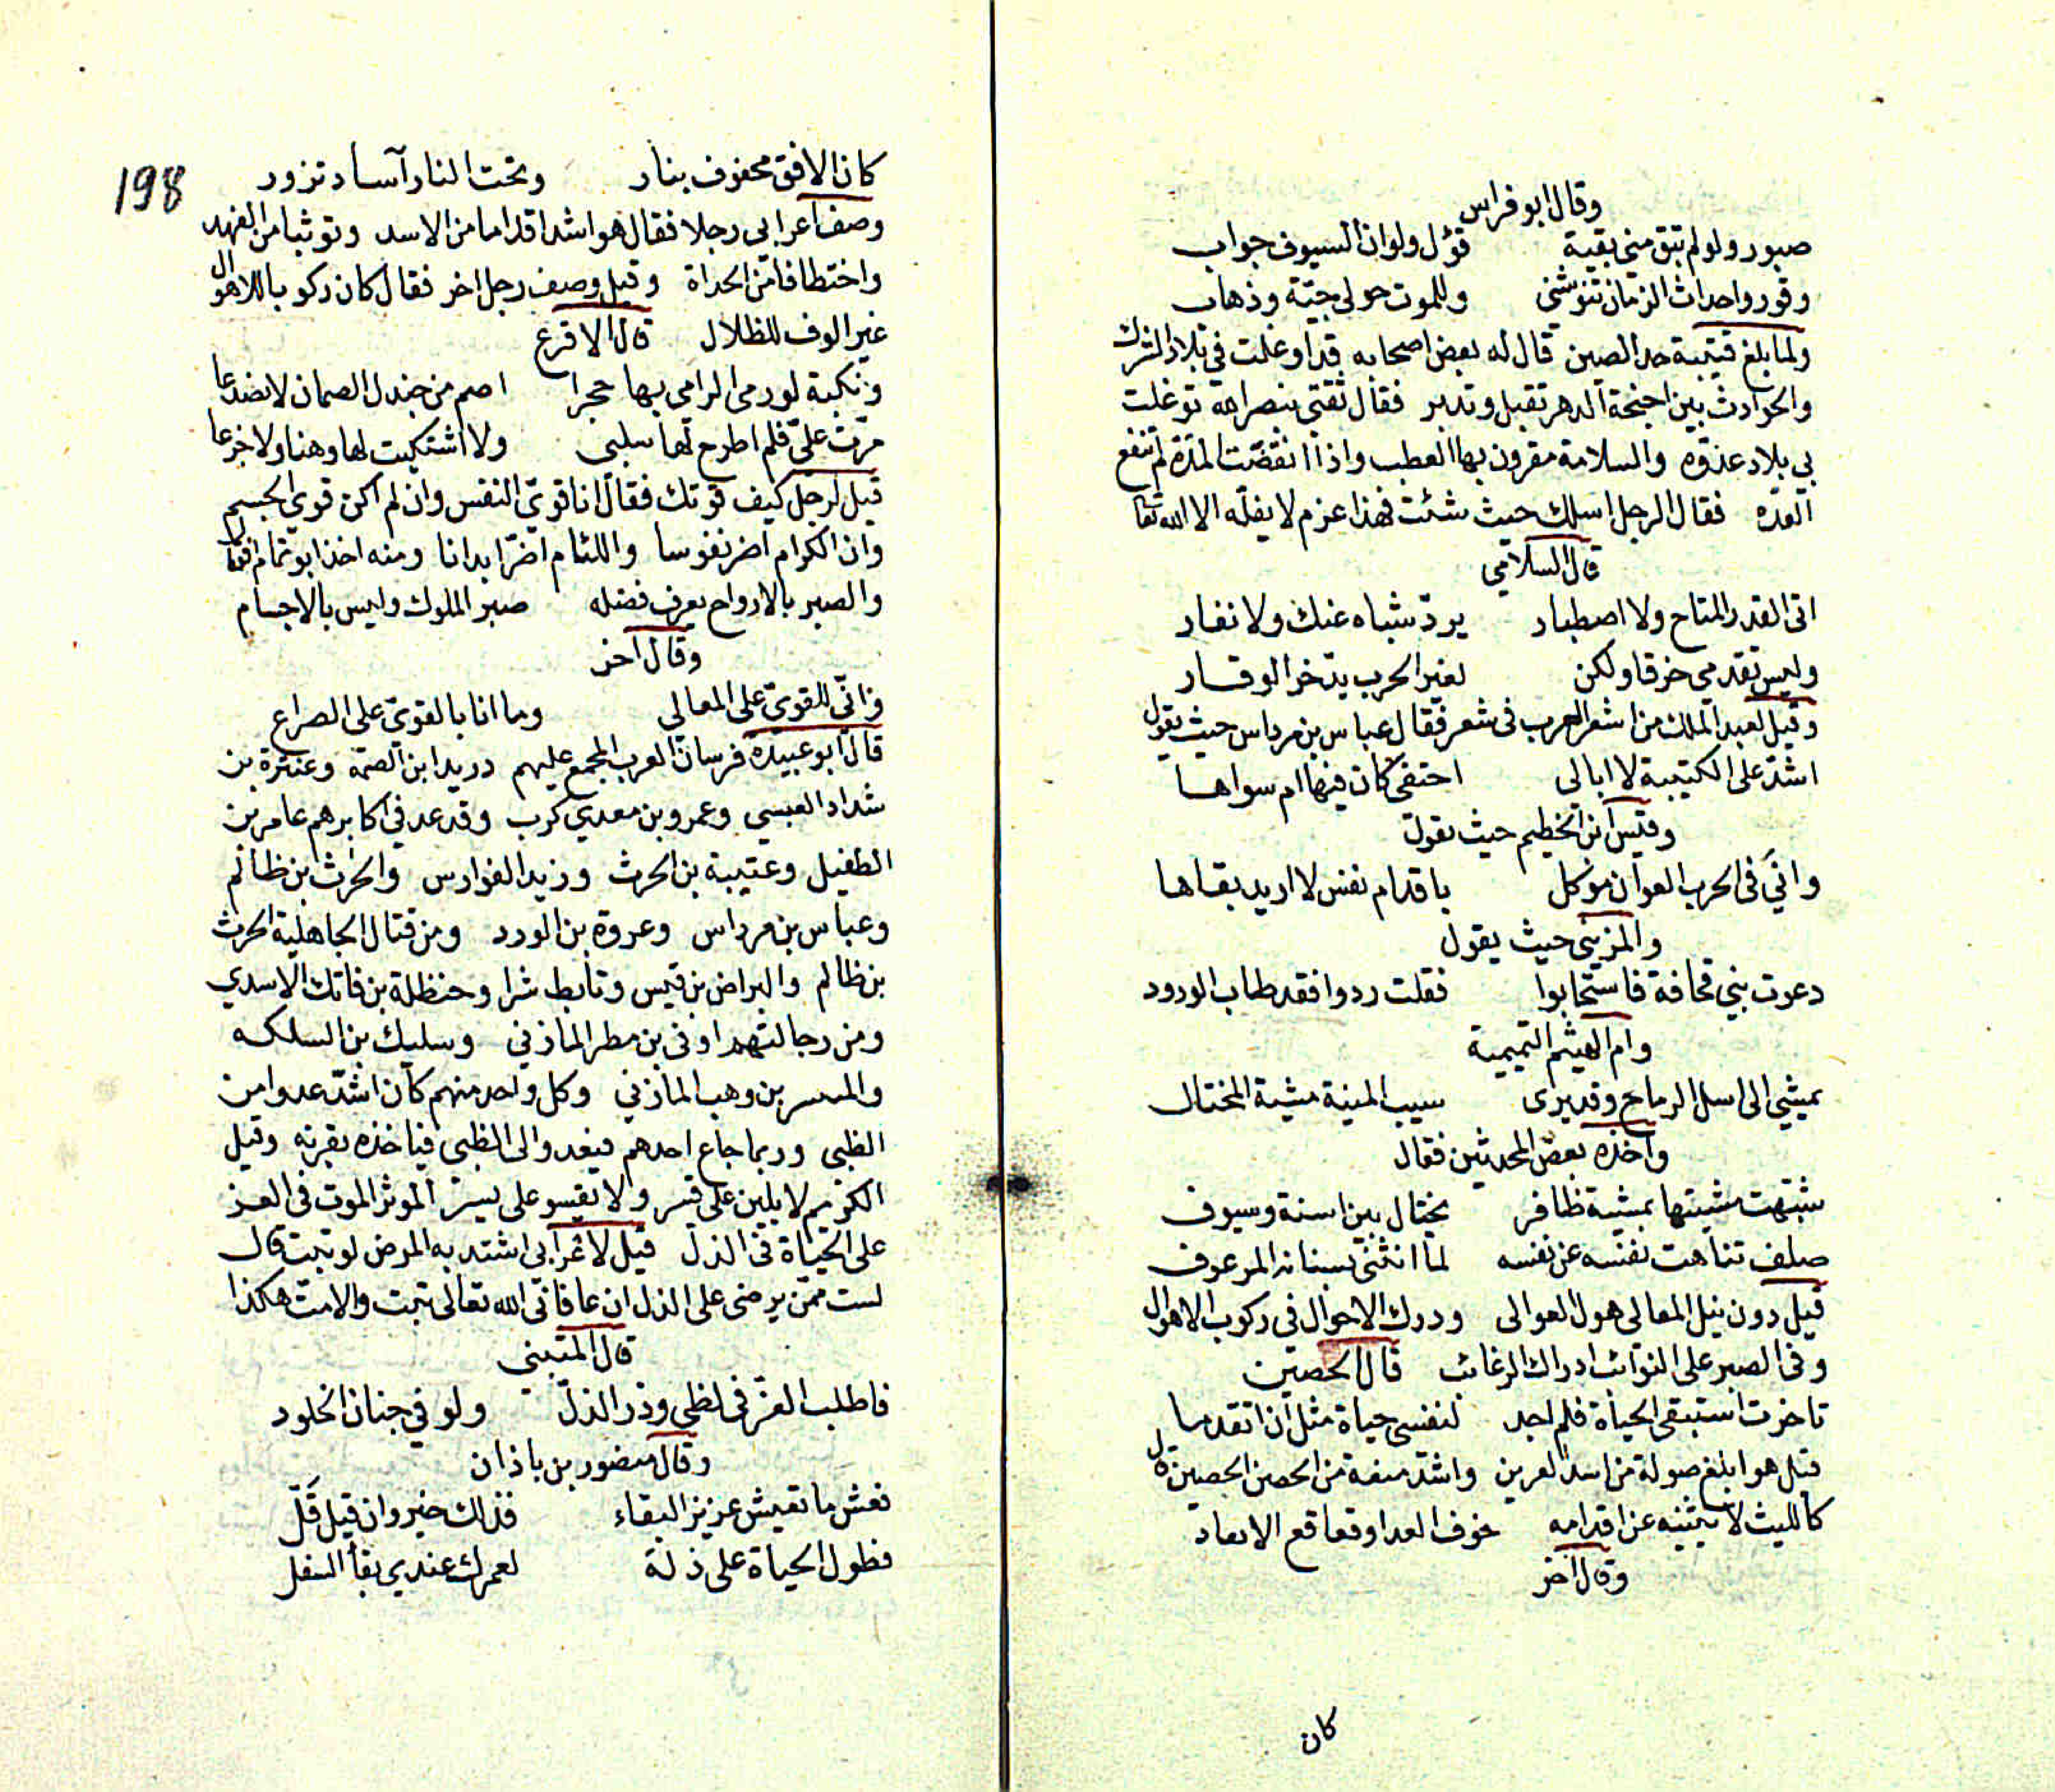 وقال ابو فراس
صبور ولو لم تبق مني بقية قؤل ولو ان السيوف جواب
وقور واحداث الزمان تنوشني وللموت حولي جيّة وذهاب
ولما بلغ قتيبة حد الصين قال له بعض اصحابه قد اوغلت في بلاد الترك
والحوادث بين اجنحة الدهر تقبل وتدبر فقال ثقتي بنصر الله توغلت
بي بلاد عدوّه والسلامة مقرون بها العطب واذا انقضت المدّة لم تنفع
العدّه فقال الرجل اسلك حيث شئت فهذا عزم لا يفلّه الا الله تعا
قال السلامي
اتى القدر المتاح ولا اصطبار يردّ شباه عنك ولا نفار
وليس تقدمي خرقا ولكن لغير الحرب يدّخر الوقار
وقيل لعبد الملك من اشعر العرب في شعر فقال عباس بن مرداس حيث يقول
اشدّ على الكتيبة لا ابالى احتفي كان فيها ام سواها
وقيس ابن الخطيم حيث يقول
واني في الحرب العوان موكل باقدام نفس لا اريد بقاها
والمزني حيث يقول
دعوت بني قحافة فاستجابوا فقلت ردوا فقد طاب الورود
وام الهيثم التميمية
يمشي الى اسل الرماح وقد يرى سبب المنية مشية المختال
واخذه بعض المحدثين فقال
شبّهت مشيتها بمشية ظافر يختال بين اسنة وسيوف
صلف تناهت نفسه عن نفسه لما انثنى بسنانه المرعوف
قيل دون نيل المعالى هول العوالى ودرك الاحوال في ركوب الاهوال
وفي الصبر على النوائب ادراك الرغائب قال الحصين
تاخرت استبقي الحياة فلم اجد لنفسى حياة مثل ان اتقدما
قيل هو ابلغ صولة من اسد العرين واشدّ منعة من الحصن الحصين قال
كالليث لا يثنيه عن اقدامه خوف العدا وقعاقع الابعاد
وقال اخر
كان
198
كان الافق محفوف بنار وتحت النار آساد تزور
وصف اعرابى رجلا فقال هو اشد اقداما من الاسد وتوثبا من الفهد
واختطافا من الحداة وقيل وصف رجل اخر فقال كان ركوبا للاهوال
غير الوف للظلال قال الاقرع
ونكبة لو رمى الرامي بها حجرا اصم من جندل الصمان لانصدعا
مرّت علىّ فلم اطرح لها سلبى ولا اشتكيت لها وهنا ولا جزعا
قيل لرجل كيف قوتك فقال انا قوىّ النفس وان لم اكن قوى الجسم
وان الكرام اصبر نفوسا واللئام اصبر ابدانا ومنه اخذ ابو تمام فقال
والصبر بالارواح يعرف فضله صبر الملوك وليس بالاجسام
وقال اخر
وانّي للقوىّ على المعالي وما انا بالقوىّ على الصراع
قال ابو عبيدة فرسان العرب المجمع عليهم دريد ابن الصمّة وعنترة بن
شداد العبسي وعمرو بن معدي كرب وقد عد في اكابرهم عامر بن
الطفيل وعتيبة بن الحرث وزيد الفوارس والحرث بن ظالم
وعباس بن مرداس وعروة بن الورد ومن قتال الجاهلية الحرث
بن ظالم والبراض بن قيس وتابط شرا وحنظلة بن فاتك الاسدي
ومن رجالتهم اوفى بن مطر المازني وسليك بن السلكه
بن وهب المازني وكل واحد منهم كان اشدّ عدوا من
الظبى وربما جاع احدهم فيغدو الى الظبى فياخذه بقرنه وقيل
الكريم لا يلين على قسر ولا يقسو على يسر الموثر الموت في العز
على الحياة في الذل قيل لاعرابى اشتد به المرض لو تبت قال
لست ممّن يرضى على الذل ان عافانى الله تعالى تبت والامت هكذا
قال المتنبي
فاطلب العزّ فى لظى وذر الذلّ ولو في جنان الخلود
وقال منصور بن باذان
فعش ما تعيش عزيز البقاء فذلك خير وان قيل قلّ
فطول الحياة على ذلة لعمرك عندي بقأ السفل